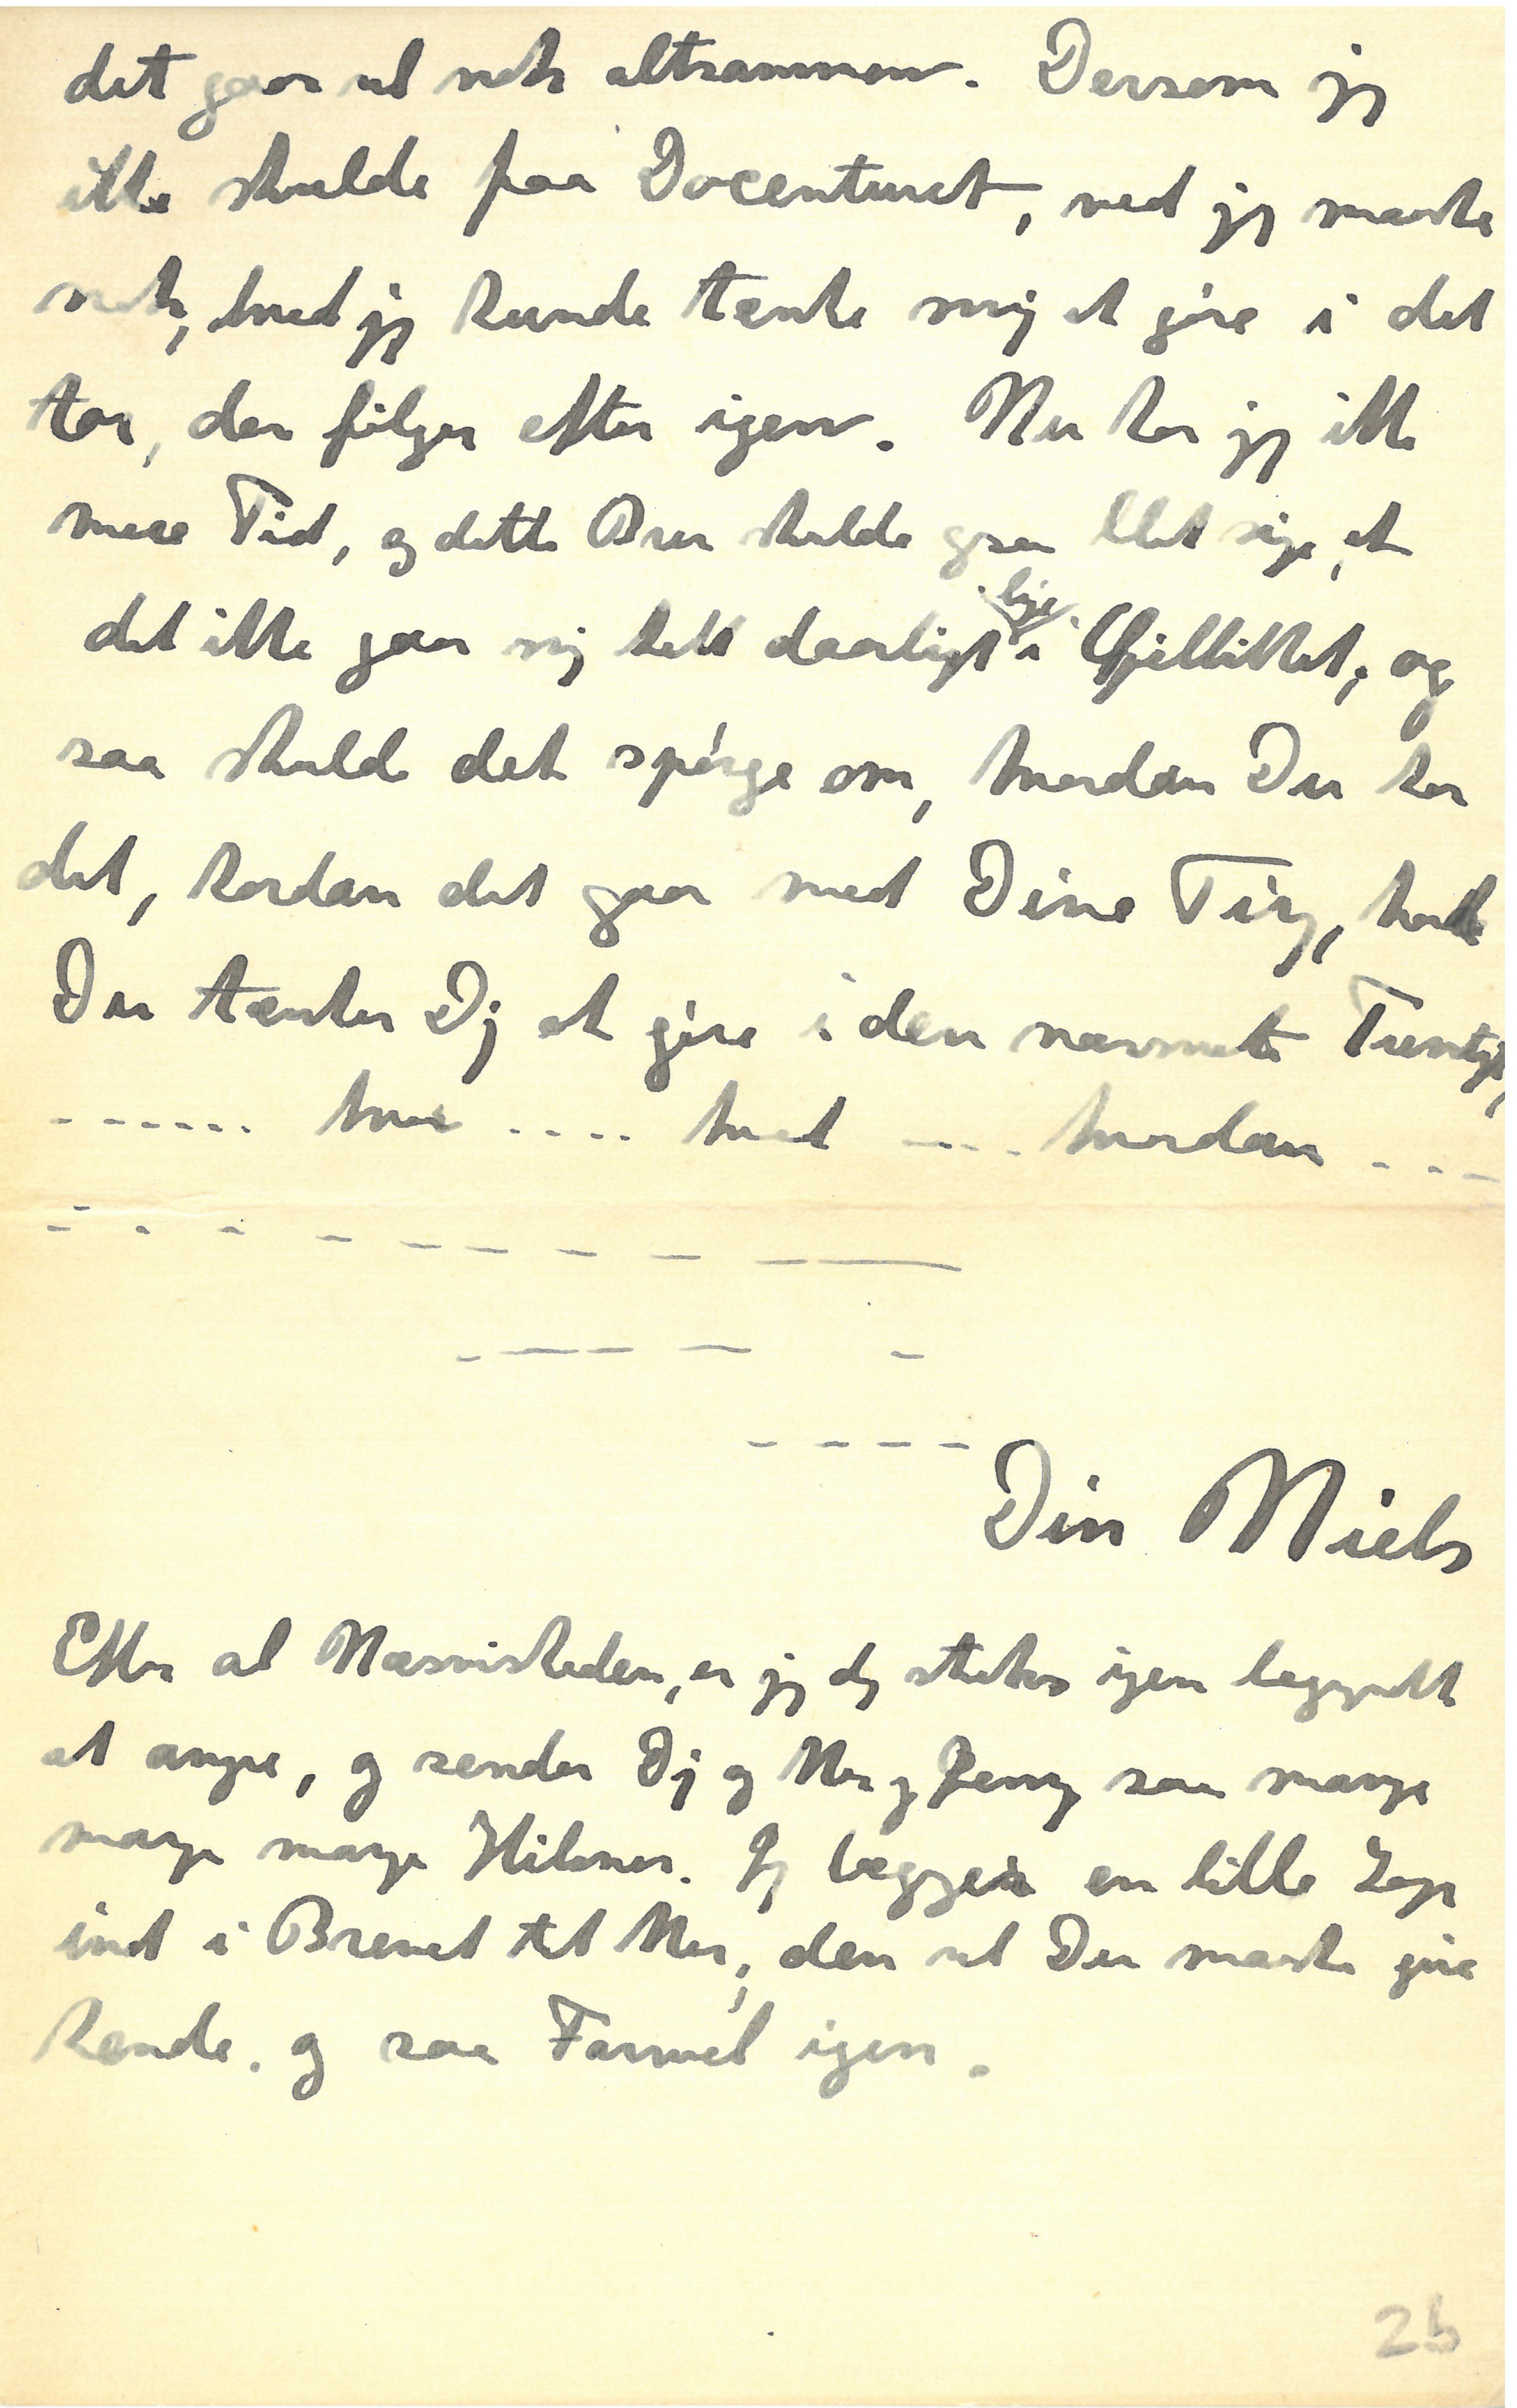 det gaar vel nok altsammen. Dersom jeg
ikke skulde faa Docenturet, ved jeg maaske
nok, hvad jeg kunde tænke mig at gøre i det
Aar, der følger efter igen. Nu har jeg ikke
mere Tid, og dette Brev skulde sige, at
det ikke gaar mig helt daarligt lige i Øjeblikket, og
saa skulde det spørge om, hvordan Du har
det, hvordan det gaar med Dine Ting, hvad
Du tænker Dig at gøre i den nærmeste Fremtid,
...... hvor .... hvad .... hvordan ....
Din Niels
Efter al Næsvisheden, er jeg dog straks igen begyndt
at angre, og sender Dig og og saa mange
mange mange Hilsner. Jeg lægger en lille Lap
ind i Brevet til den vil Du maaske give
hende. og saa Farvel igen.
2b